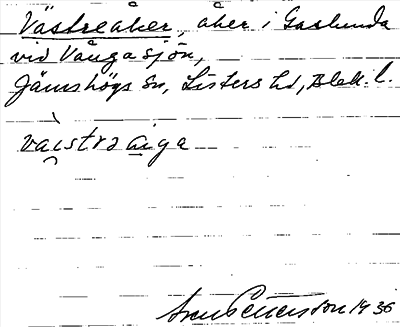 Västreåker, åker i Gaslunda
vid Vångasjön,
Jämshögs sn, Listers hd, Blek. l.
väistra åiga
Pettersson 1936